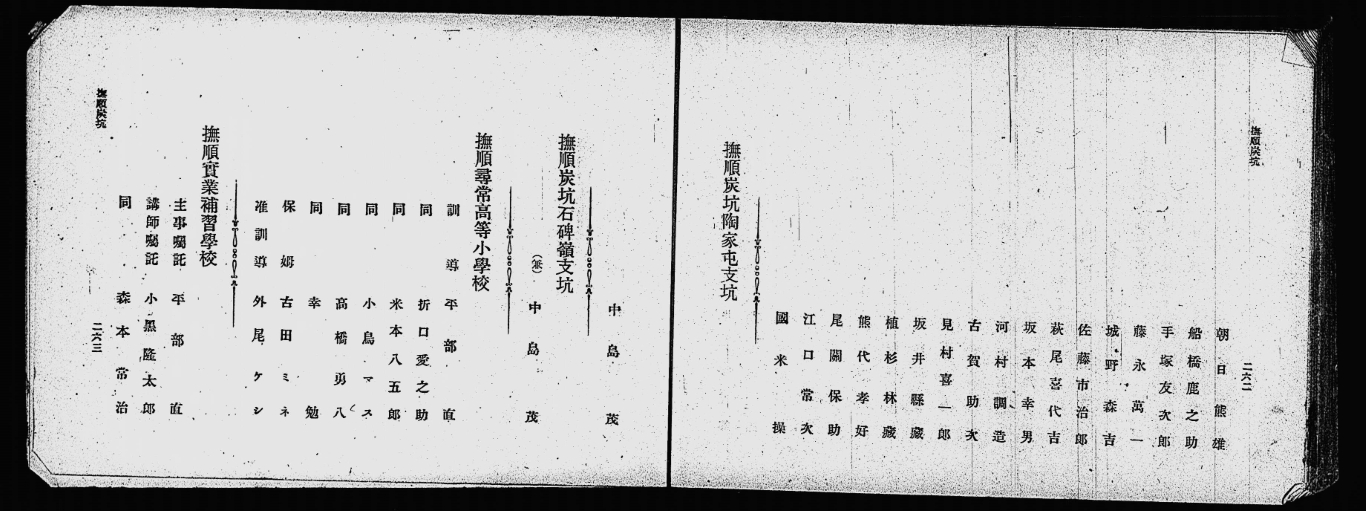 撫順炭坑
二六二
朝日熊雄
船橋鹿之助
手塚友次郎
藤永萬一
城野森吉
佐藤市治郎
萩尾喜代吉
坂本幸男
河村調造
古賀助次
見村喜一郎
坂井縣藏
植杉林藏
熊代孝好
尾關保助
江口常次
國米操
撫順炭坑陶家屯支坑
中島茂
撫順炭坑石碑嶺支坑
(兼)中島茂
撫順尋常高等小學校
訓導 平部直
同 折口愛之助
同 米本八五郎
同 小鳥マス
同 高橋勇八
同 幸勉
保姆 古田ミネ
准訓導 外尾ケシ
撫順實業補習學校
主事囑託 平部直
講師囑託 小黒隆太郎
同 森本常治
二六三
撫順炭坑